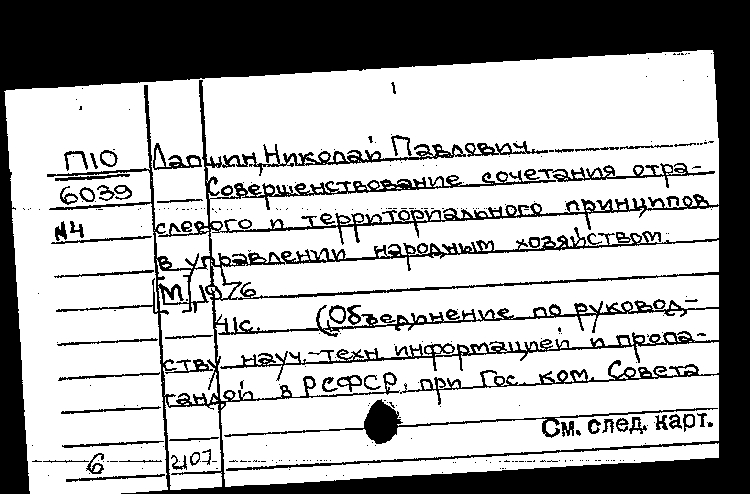 П10 Лапшин, Николай Павлович.
6039 Совершенствование сочетания отра-
№4 слевого и территориального принципов
в управлении народным хозяйством.
[М], 1976.
41с. (Объединение по руковод-
ству науч.-техн. информацией и пропа-
гандой в РСФСР, при Гос. ком. Совета
См. след. карт.
6 2107